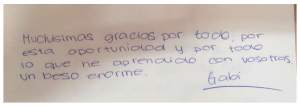 Muchísimas gracias por todo, por
esta oportunidad y por todo
lo que he aprendido con vosotras,
un beso enorme.
Gabi